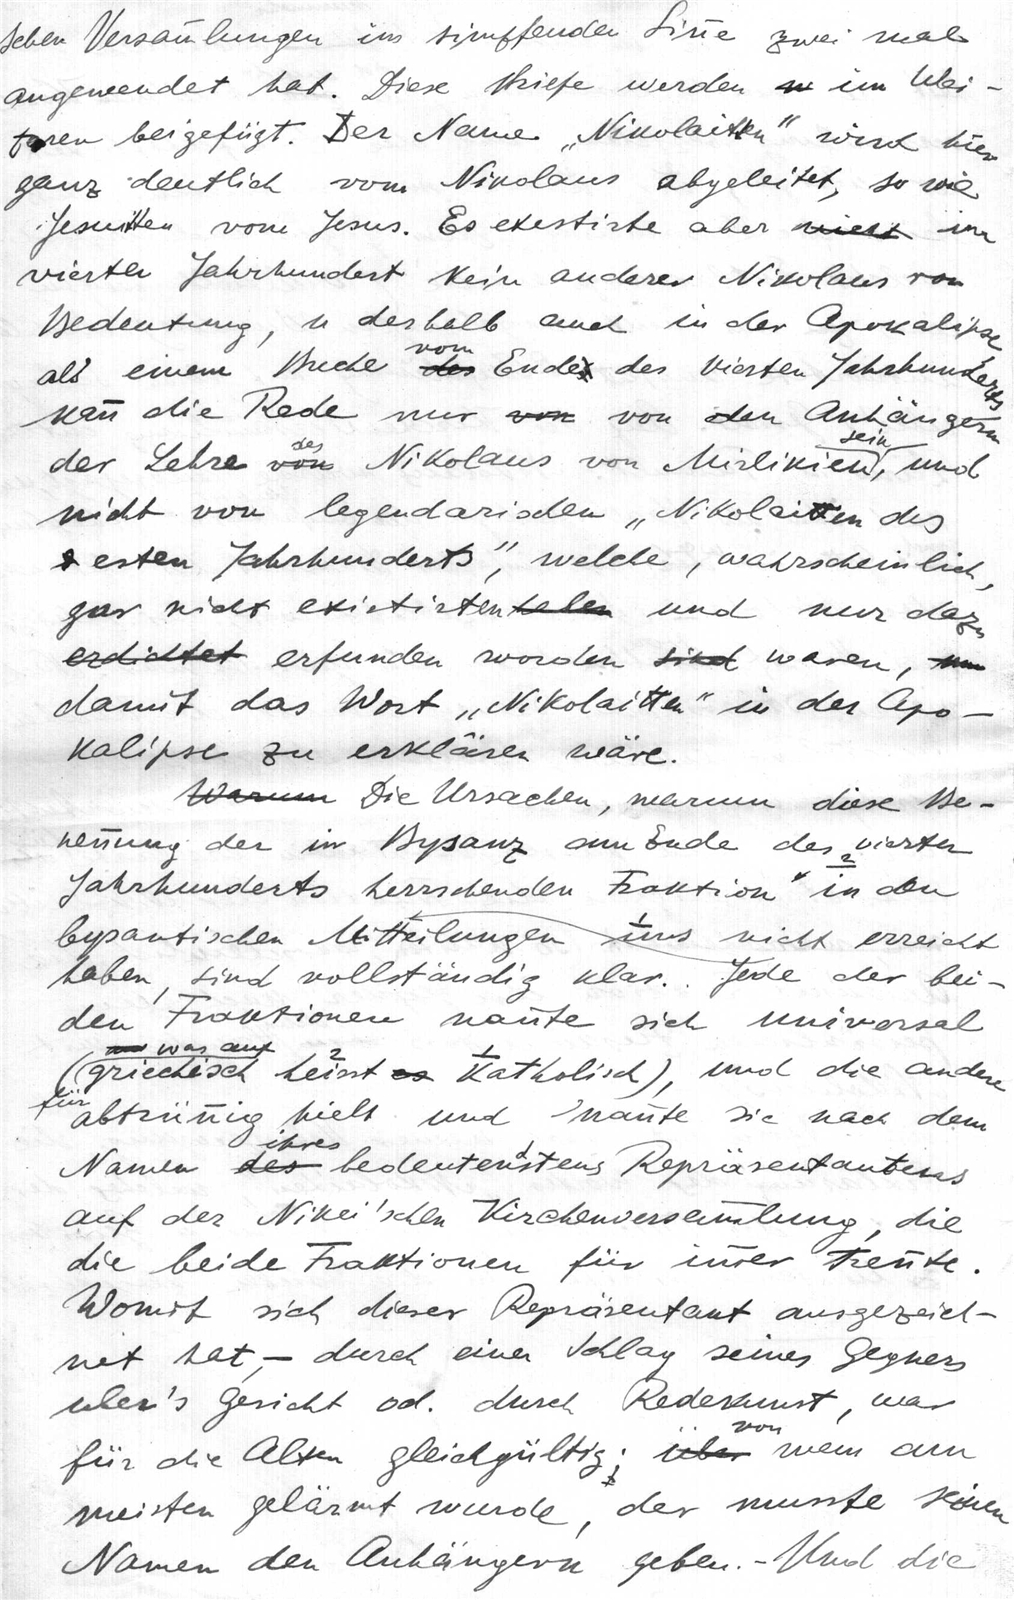 schen Versam̄lungen im simpfenden Sin̄e zwei mal
angewendet hat. Diese Briefe werden im Wei-
teren beigefügt. Der Name „Nikolaitten" wird hier
ganz deutlich vom Nikolaus abgeleitet, so wie
Jesuitten vom Jesus. Es existirte aber nicht im
vierten Jahrhundert kein anderer Nikolaus von
Bedeutung, u deshalb auch in der Apokalipse
als einem Buche des vom Endes des vierten Jahrhunderts
kan̄ die Rede nur von von den Anhängern
der Lehre von des Nikolaus von Mirlikien, sein und
nicht von legendarischen „Nikolaitten des
esten Jahrhunderts", welche, wahrscheinlich,
gar nicht existirten haben und nur dazu
erdichtet erfunden worden sind waren, um
damit das Wort „Nikolaitten" in der Apo-
kalipse zu erklären wäre.
Warum Die Ursachen, warum diese Be-
nen̄ung der in Bysanz am Ende des vierten
Jahrhunderts herrschenden Fraktion 2 in den
bysantischen Mitteilungen 1 uns nicht erreicht
haben, sind vollständig klar. Jede der bei-
den Fraktionen nan̄te sich universal
(was auf griechisch 2 heisst es 1 Katholisch), und die andere
für abtrün̄ig hielt und nan̄te sie nach dem
Namen des ihres bedeutendstens Repräsentantens
auf der Nikei'schen Kirchenversam̄lung, die
die beide Fraktionen für im̄er tren̄te.
Womit sich dieser Repräsentant ausgezeich-
net hat, – durch einen Schlag seines Gegners
uber's Gesicht od. durch Redekunst, war
für die Alten gleichgültig; über von wem am
meisten gelärmt wurde, der musste seinen
Namen den Anhängern geben. – Und die